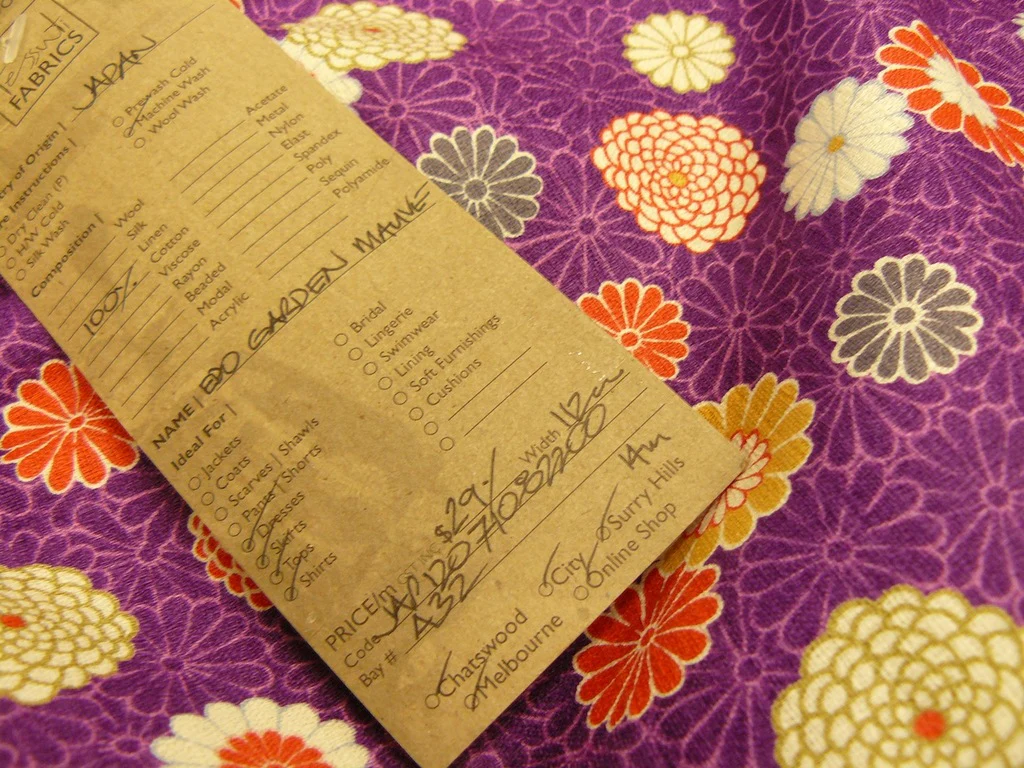 Tessuti
FABRICS
ry of Origin | JAPAN
re Instructions |
Dry Clean (F)
H/W Cold
Silk Wash
Prewash Cold
Machine Wash
Wool Wash
Composition |
Wool
Silk
Linen
100% Cotton
Viscose
Rayon
Beaded
Modal
Acrylic
Acetate
Metal
Nylon
Elast
Spandex
Poly
Sequin
Polyamide
NAME | EDO GARDEN MAUVE
Ideal For |
Jackets
Coats
Scarves | Shawls
Pants | Shorts
Dresses
Skirts
Tops
Shirts
Bridal
Lingerie
Swimwear
Lining
Soft Furnishings
Cushions
PRICE/m $29.- Width 112cm
Code
Bay # A32
Chatswood
Melbourne
City
Online Shop
Surry Hills